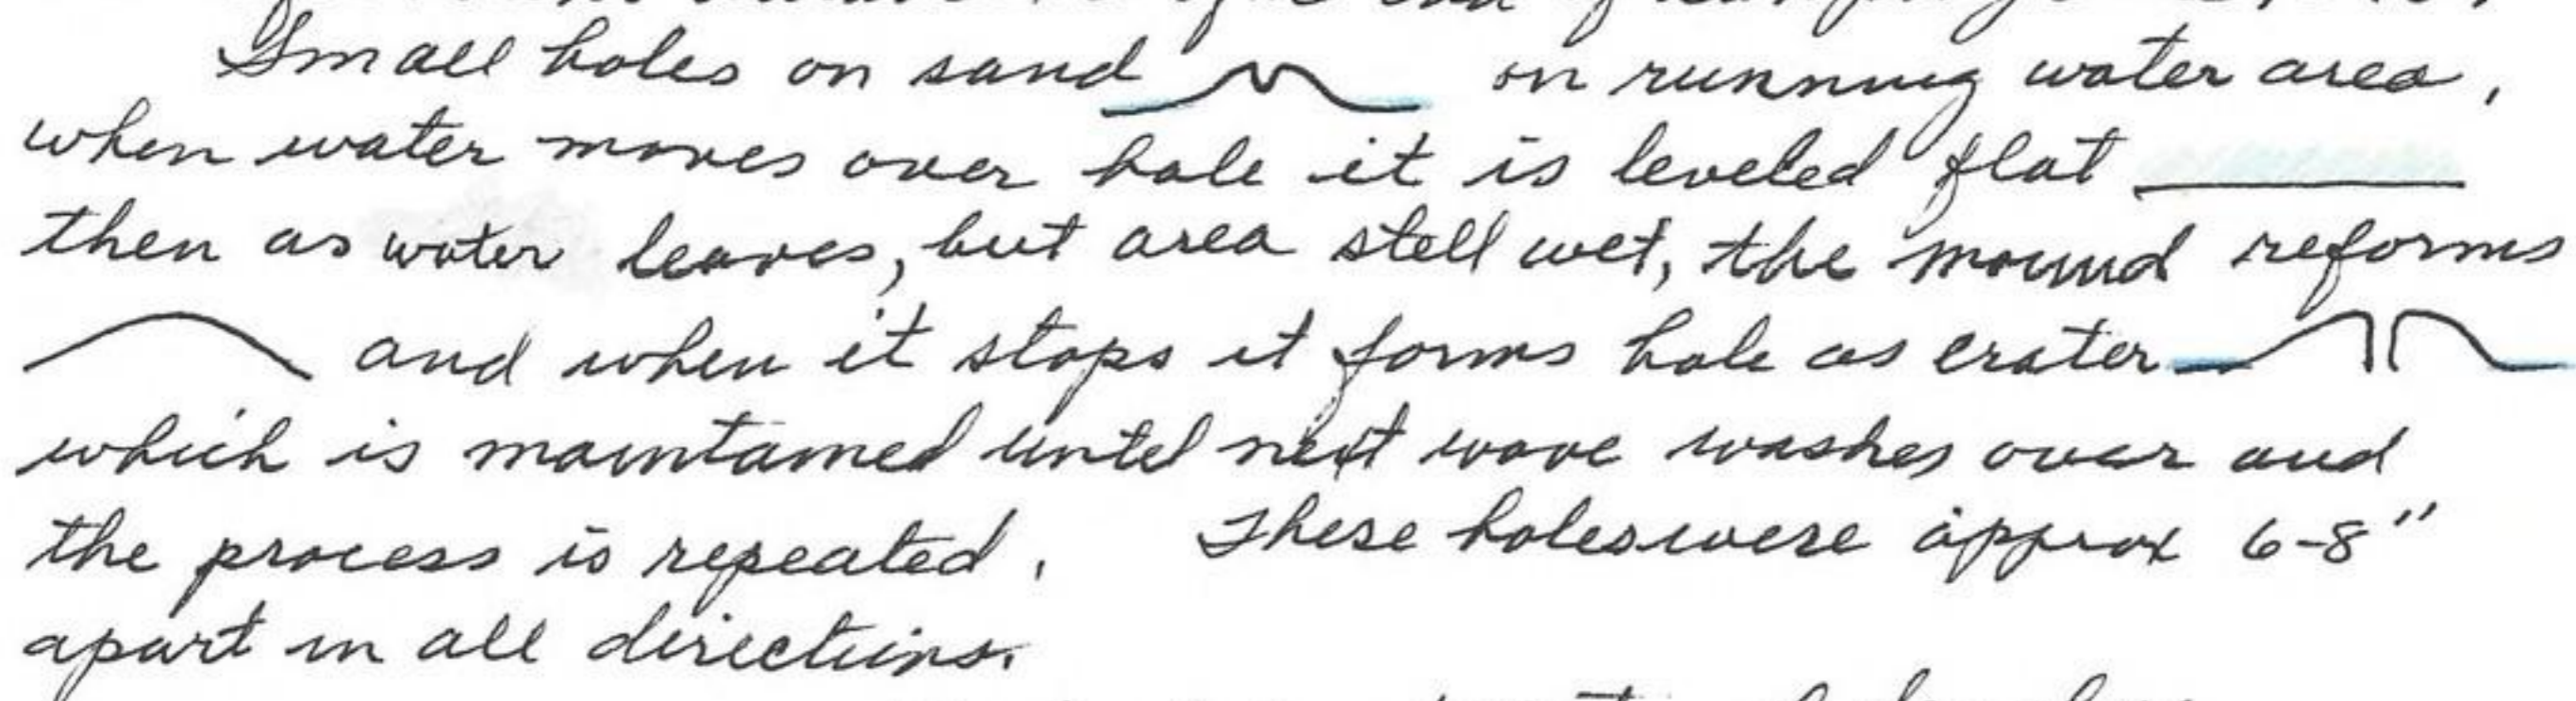 Small holes on sand on running water area,
when water moves over hole it is leveled flat
then as water leaves, but area still wet, the mound reforms
and when it stops it forms hole as crater
which is maintained until next wave washes over and
the process is repeated. These holes were approx 6-8"
apart in all directions.